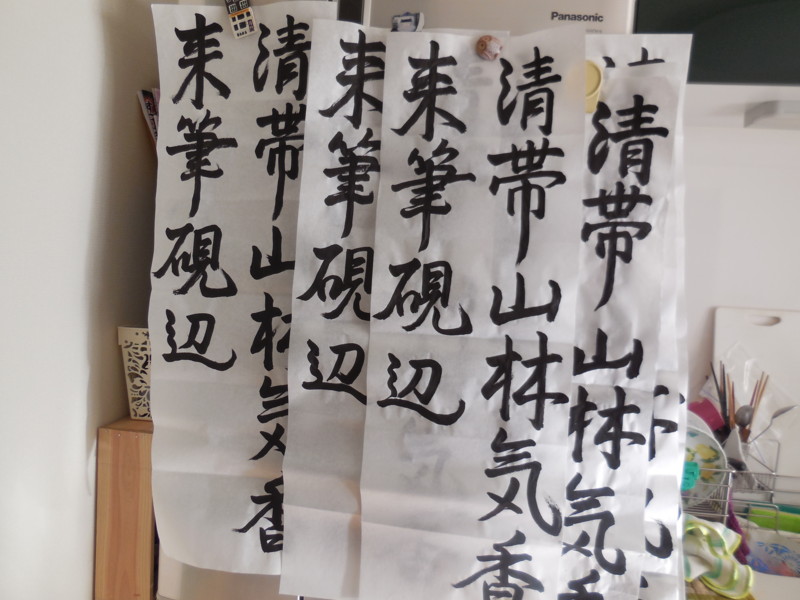 Panasonic
清帯山林気香
清帯山林気香
来筆硯辺
来筆硯辺
清帯山林気香
来筆硯辺